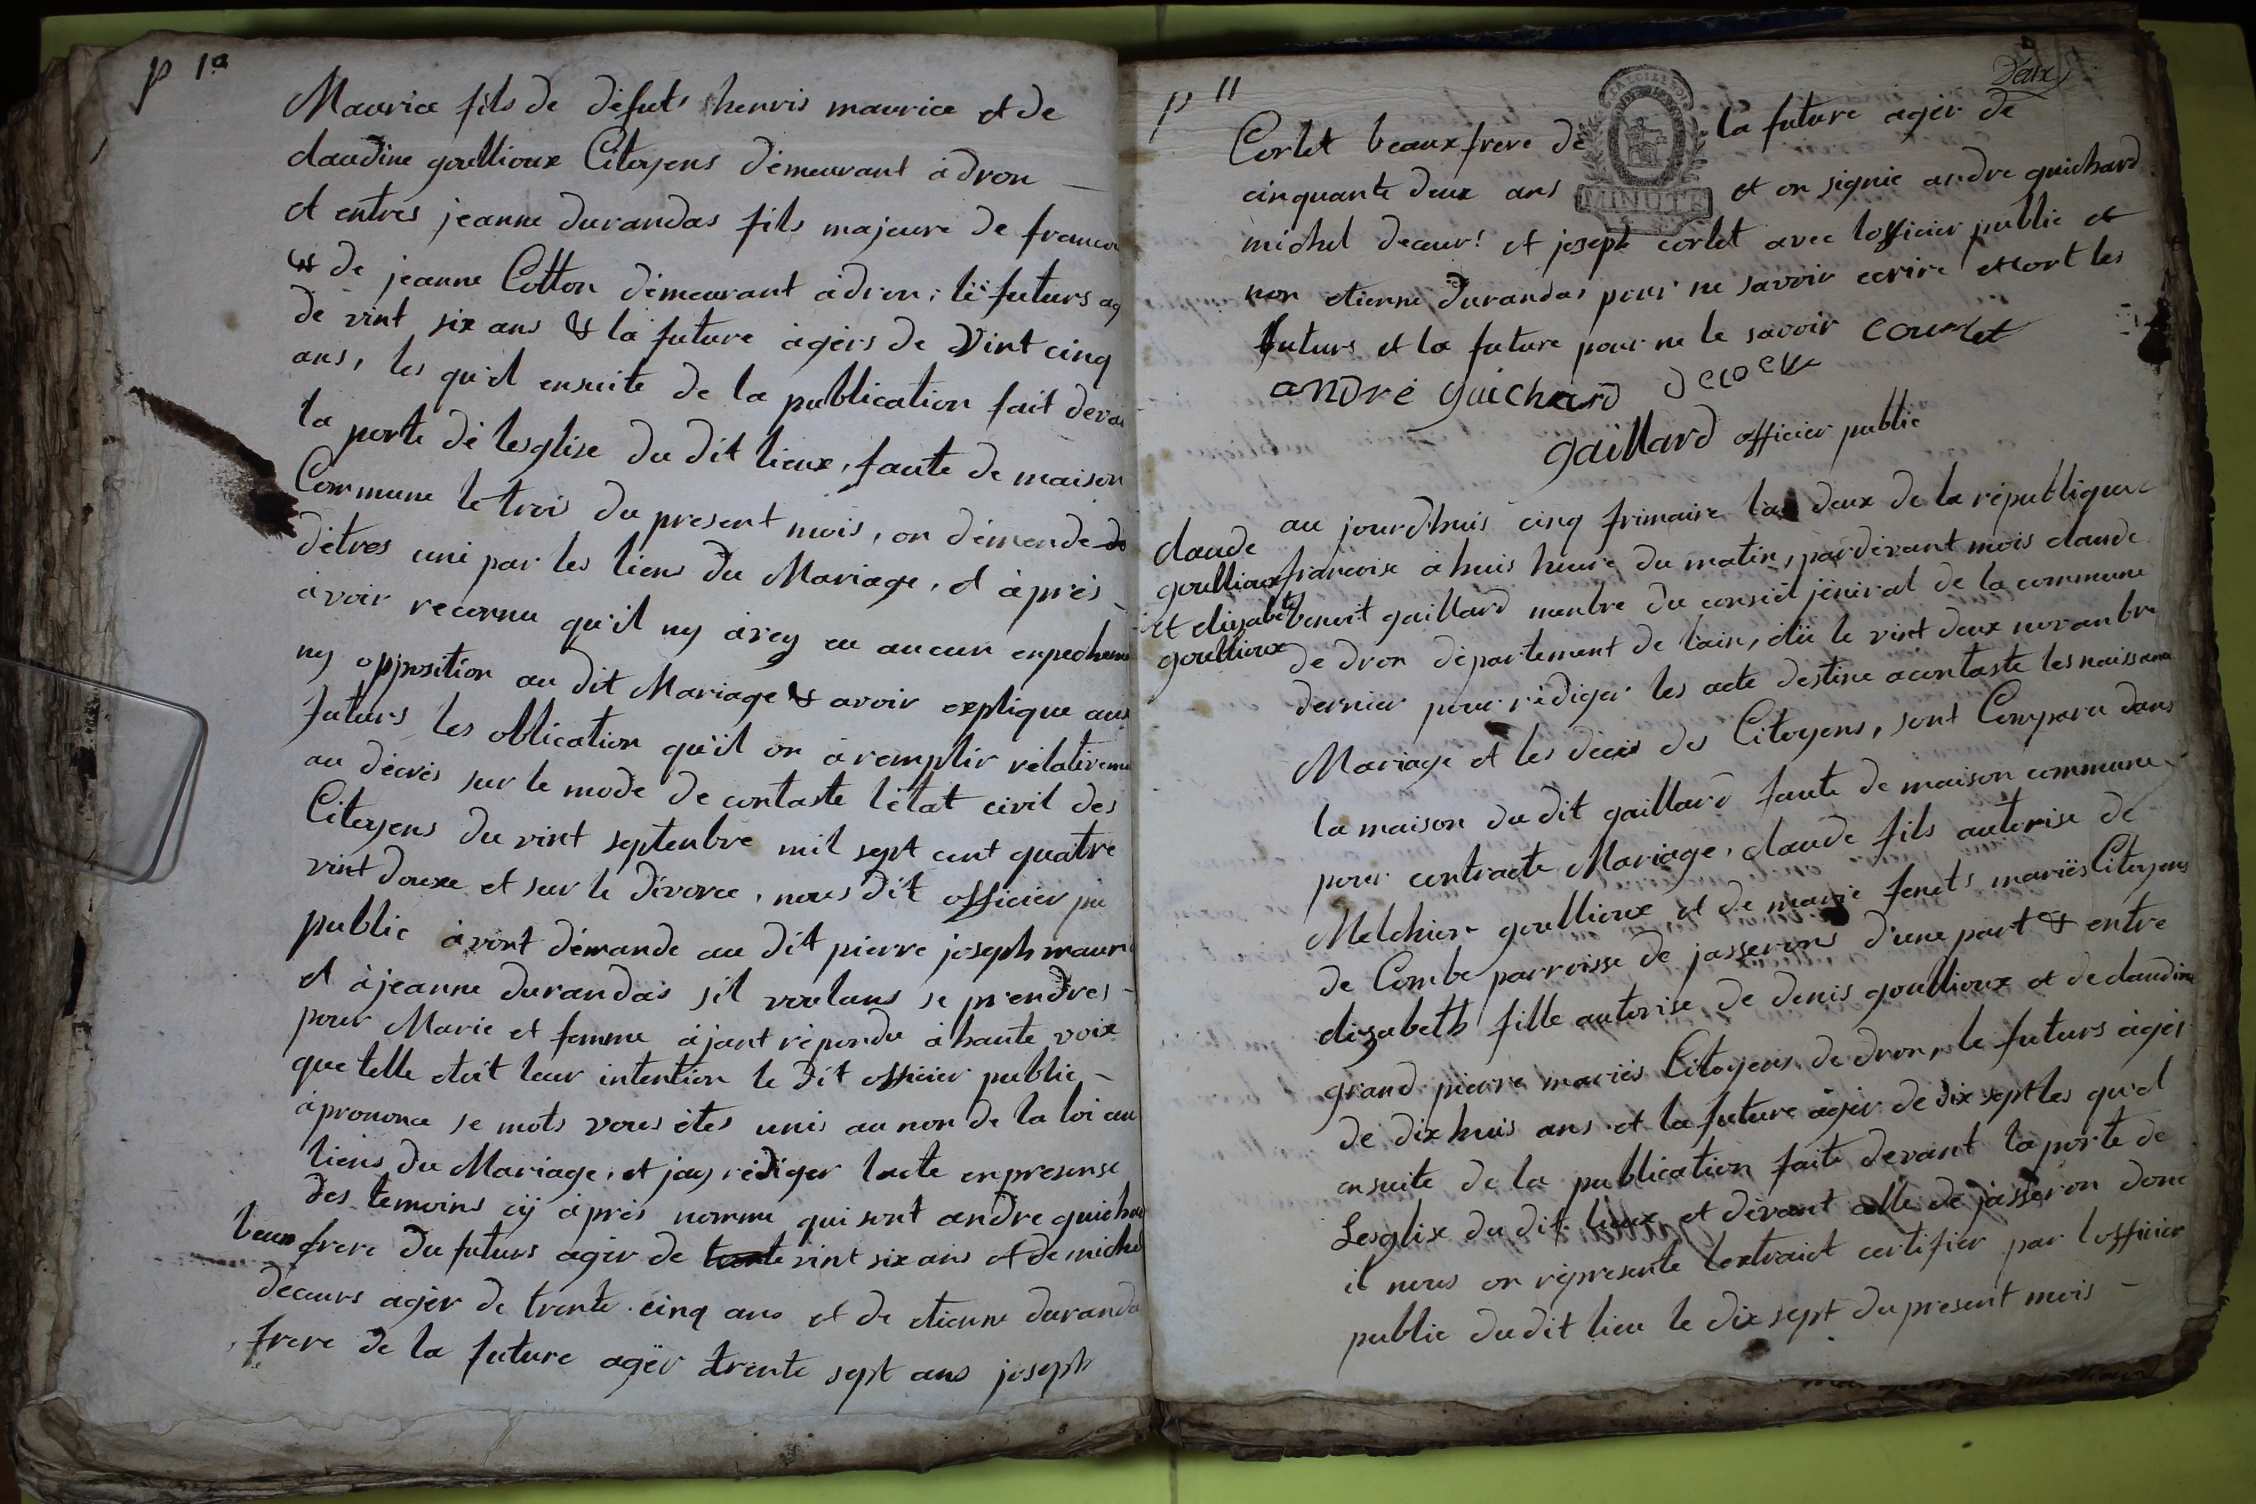 p 10
Maurice fils de défuts henris maurice et de
claudine goullioux Citoyens démeurant à dron
et entres jeanne durandas fils majeure de francoi
& de jeanne Cotton démeurant à dron, lë futurs ag
de vint six ans & la future agérs de Vint cinq
ans, les qu'el ensuite de la publication fait deva
la porte dé lesglise du dit lieux, faute de maison
Commune le trois du present mois, on démende
d'etres uni par les liens du Mariage, et àprés
àvoir reconnu qu'il ny àvey eu aucun enpechem
ny opposition au dit Mariage & avoir explique aux
futurs les oblication qu'il on à remplir rélativeme
au décrés sur le mode de contaste l'etat civil des
Citoyens du vint septenbre mil sept cent quatre
vint douxe et sur le divorce, nous dit officier pu
public àvont démande au dit pierre joseph mauri
et à jeanne durandas s'il voulans se prendres
pour Marie et femme àjant répondu à haute voix
que telle etoit leur intention le dit officier public
à prononce se mots vous étes unis au non de la loi au
liens du Mariage, et jay rédiger lacte enpresense
des temoins cÿ àprés nomme qui sont andre guicha
beau frere du futurs agér de vint six ans et de michel
déceurs agér de trente cinq ans et de etienne duranda
frere de la future agër trente sept ans joseph
p 11
Deux
Corlet beaux frere de la future agér de
cinquante deux ans et on signie andre guichard
MINUTE
michel deceur et joseph corlet avec lofficier public et
non etienne durandas pour ne savoir ecrire et les
futurs et la future pour ne le savoir courlet
andré guichard
gaillard officier public
claude
goullioux
et elizabet
goullioux
au jourd'huis cinq frimaire la deux de la république
francoise à huis heure du matin, pardévant mois claude
benoit gaillard menbre du conseil jéniral de la commune
de dron département de lain, élü le vint deux novanbre
dernier pour rédiger les acte destine a contaste les naissance
Mariage et les décis des Citoyens, sont Comparu dans
la maison du dit gaillard faute de maison commune
pour contracte Mariage, claude fils autorise de
Melchior goullioux et de marie fenets mariés Citoyens
de Combe parroisse de jasserons d'une part & entre
elizabeth fille autorise de denis goullioux et de claudine
grand pierre mariés Citoyens de dron, le futurs àgér
de dix huis ans et la future agér de dix sept les qu'el
ensuite de la publication faite devant la porte de
Lesglix du dit lieux et dévant celle de jasseron donc
il nous on réprésente lextraict certifier par lofficier
public du dit lieu le dix sept du present mois